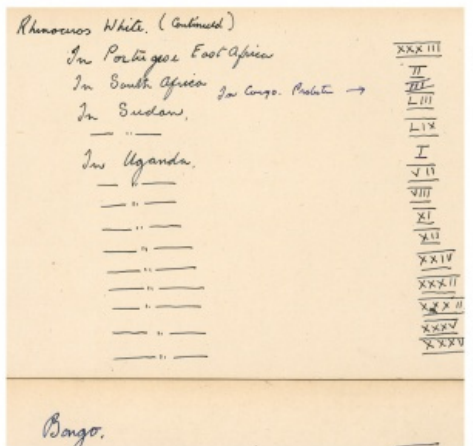 Rhinoceros White. (Continued)
In Portugese East Africa XXXIII
In South Africa II
In Congo. → III
In Sudan. LIII
— " — LIX
In Uganda. I
— " — VII
— " — VIII
— " — XI
— " — XII
— " — XXIV
— " — XXXII
— " — XXXII
— " — XXXV
— " — XXXV
Bongo.